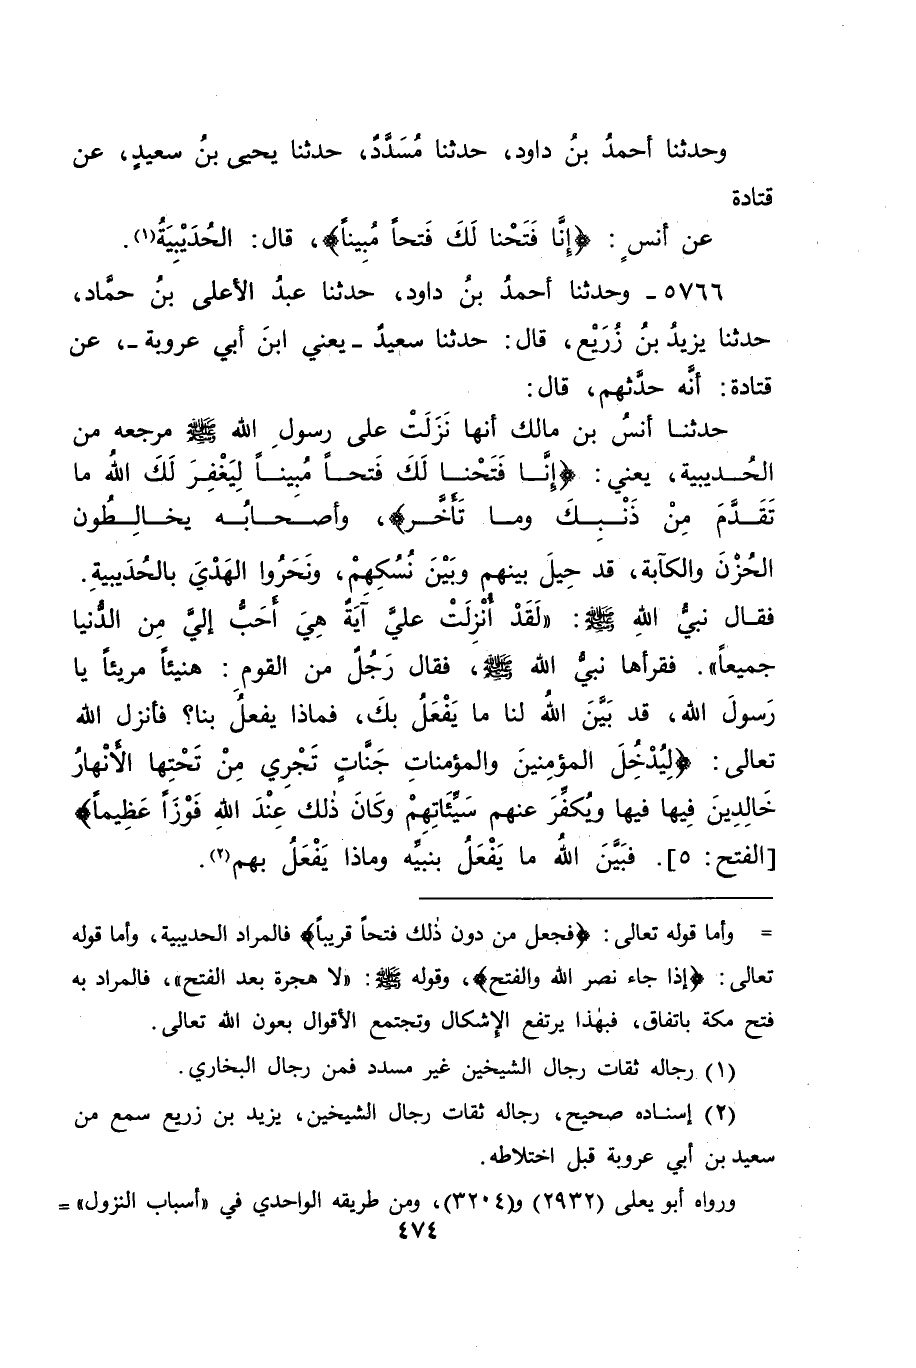 وحدثنا أحمدُ بنُ داود، حدثنا مُسَدَّدٌ، حدثنا يحيى بنُ سعيدٍ، عن
قتادة
عن أنسٍ: ﴿إنَّا فَتَحْنا لَكَ فَتحاً مُبيناً﴾، قال: الحُدَيْبِيَةُ(١).
٥٧٦٦ ـ وحدثنا أحمدُ بنُ داود، حدثنا عبدُ الأعلى بنُ حمَّاد،
حدثنا يزيدُ بنُ زُرَيْعٍ، قال: حدثنا سعيدٌ ـ يعني ابنَ أبي عروبة ـ، عن
قتادة: أنَّه حدَّثهم، قال:
حدثنا أنسُ بن مالك أنها نَزَلَتْ على رسولِ الله ﷺ مرجعه من
الحُديبية، يعني: ﴿إنَّا فَتَحْنا لَكَ فَتحاً مُبيناً لِيَغْفِرَ لَكَ اللهُ ما
تَقَدَّمَ مِنْ ذَنْبِكَ وما تَأَخَّر﴾، وأصحابُه يخالِطُون
الحُزْنَ والكآبة، قد حِيلَ بينهم وبَيْنَ نُسُكِهِمْ، ونَحَرُوا الهَدْيَ بالحُدَيبيةِ.
فقال نبيُّ اللهِ ﷺ: «لَقَدْ أُنْزِلَتْ عليَّ آيَةٌ هِيَ أَحَبُّ إليَّ مِن الدُّنيا
جميعاً». فقرأها نبيُّ الله ﷺ، فقال رَجُلٌ من القومِ: هنيئاً مريئاً يا
رَسولَ الله، قد بَيَّنَ اللهُ لنا ما يَفْعَلُ بكَ، فماذا يفعلُ بنا؟ فأنزل الله
تعالى: ﴿لِيُدْخُلَ المؤمنينَ والمؤمناتِ جَنَّاتٍ تَجْري مِنْ تَحْتِها الأَنْهارُ
خَالِدِينَ فِيها فيها ويُكفِّرَ عنهم سَيِّئَاتِهِمْ وكَانَ ذٰلك عِنْدَ اللهِ فَوْزَاً عَظِيماً﴾
[الفتح: ٥]. فبَيَّنَ اللهُ ما يَفْعَلُ بنبيِّه وماذا يَفْعَلُ بهم(٢).
= وأما قوله تعالى: ﴿فجعل من دون ذٰلك فتحاً قريباً﴾ فالمراد الحديبية، وأما قوله
تعالى: ﴿إذا جاء نصر الله والفتح﴾، وقوله ﷺ: «لا هجرة بعد الفتح»، فالمراد به
فتح مكة باتفاق، فبهٰذا يرتفع الإشكال وتجتمع الأقوال بعون الله تعالى.
(١) رجاله ثقات رجال الشيخين غير مسدد فمن رجال البخاري.
(٢) إسناده صحيح، رجاله ثقات رجال الشيخين، يزيد بن زريع سمع من
سعيد بن أبي عروبة قبل اختلاطه.
ورواه أبو يعلى (٢٩٣٢) و(٣٢٠٤)، ومن طريقه الواحدي في «أسباب النزول» =
٤٧٤